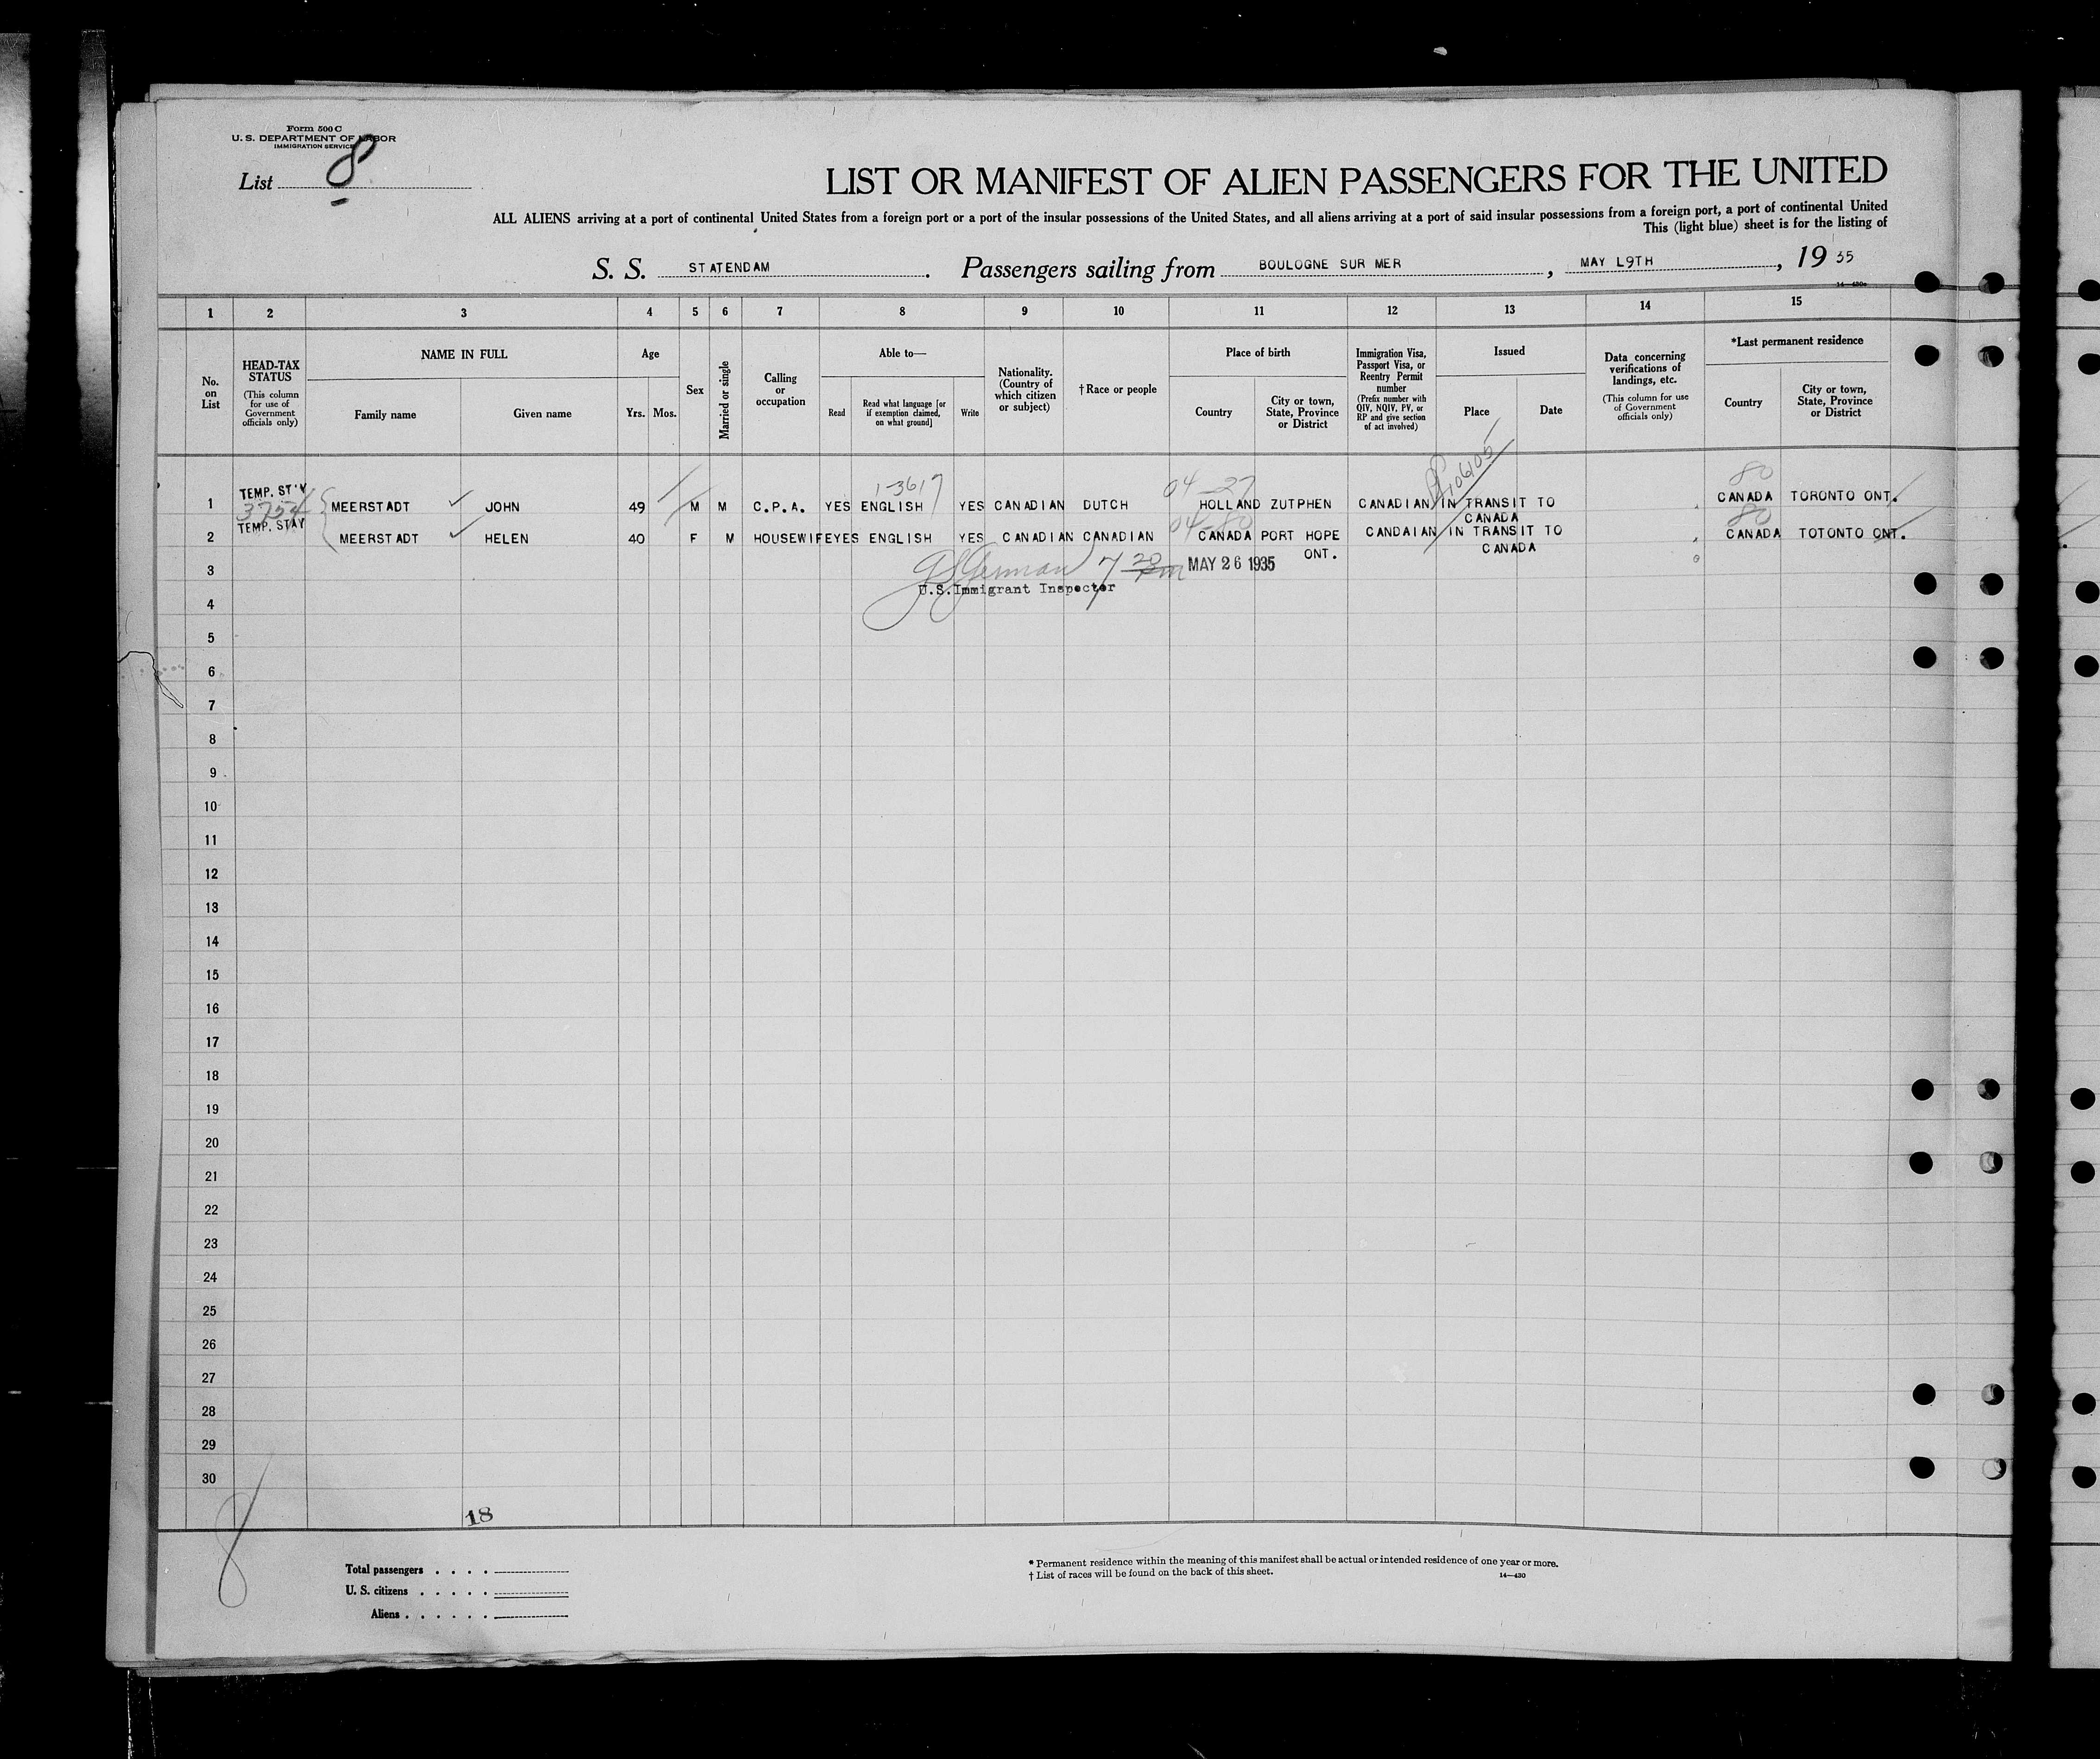 Form 500 C
U. S. DEPARTMENT OF LABOR
IMMIGRATION SERVICE
List 8
LIST OR MANIFEST OF ALIEN PASSENGERS FOR THE UNITED
ALL ALIENS arriving at a port of continental United States from a foreign port or a port of the insular possessions of the United States, and all aliens arriving at a port of said insular possessions from a foreign port, a port of continental United
This (light blue) sheet is for the listing of
S. S. STATENDAM . Passengers sailing from BOULOGNE SUR MER , MAY L9TH , 19 35
1 2 3 4 5 6 7 8 9 10 11 12 13 14 15
No. on List
HEAD-TAX STATUS (This column for use of Government officials only)
NAME IN FULL
Family name Given name
Age
Yrs. Mos.
Sex
Married or single
Calling or occupation
Able to—
Read
Read what language [or if exemption claimed, on what ground]
Write
Nationality. (Country of which citizen or subject)
† Race or people
Place of birth
Country
City or town, State, Province or District
Immigration Visa, Passport Visa, or Reentry Permit number (Prefix number with QIV, NQIV, PV, or RP and give section of act involved)
Issued
Place Date
Data concerning verifications of landings, etc. (This column for use of Government officials only)
*Last permanent residence
Country
City or town, State, Province or District
1-3617 04-27 80
1 TEMP. ST'Y MEERSTADT JOHN 49 M M C.P.A. YES ENGLISH YES CANADIAN DUTCH HOLLAND ZUTPHEN CANADIAN IN TRANSIT TO CANADA CANADA TORONTO ONT.
04-80 80
2 TEMP. STAY MEERSTADT HELEN 40 F M HOUSEWIFEYES ENGLISH YES CANADIAN CANADIAN CANADA PORT HOPE ONT. CANDAIAN IN TRANSIT TO CANADA CANADA TOTONTO ONT.
MAY 26 1935
U.S.Immigrant Inspector
3
4
5
6
7
8
9
10
11
12
13
14
15
16
17
18
19
20
21
22
23
24
25
26
27
28
29
30
18
8
Total passengers . . . .
U. S. citizens . . . . .
Aliens . . . . . .
* Permanent residence within the meaning of this manifest shall be actual or intended residence of one year or more.
† List of races will be found on the back of this sheet.
14—430